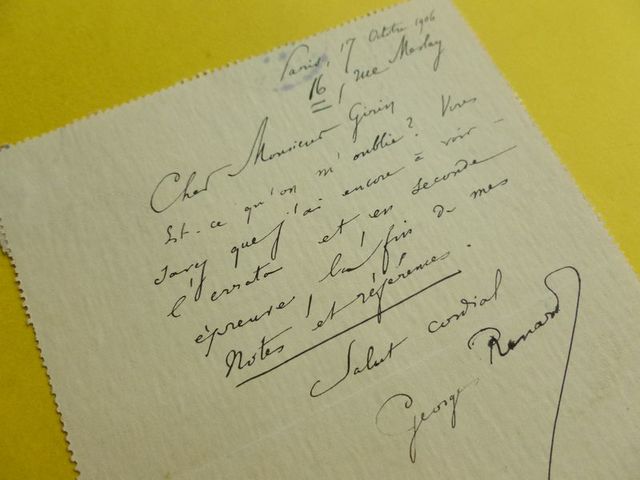 Paris, 17 Octobre 1906
16, rue Meslay
Cher Monsieur Girin
Est-ce qu'on m'oublie? Vous
savez que j'ai encore à voir
l'errata et en seconde
épreuve la fin de mes
Notes et références.
Salut cordial
Georges Renard